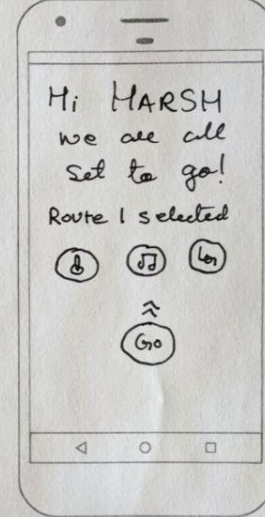 Hi HARSH
we are all
set to go!
Route 1 selected
Go